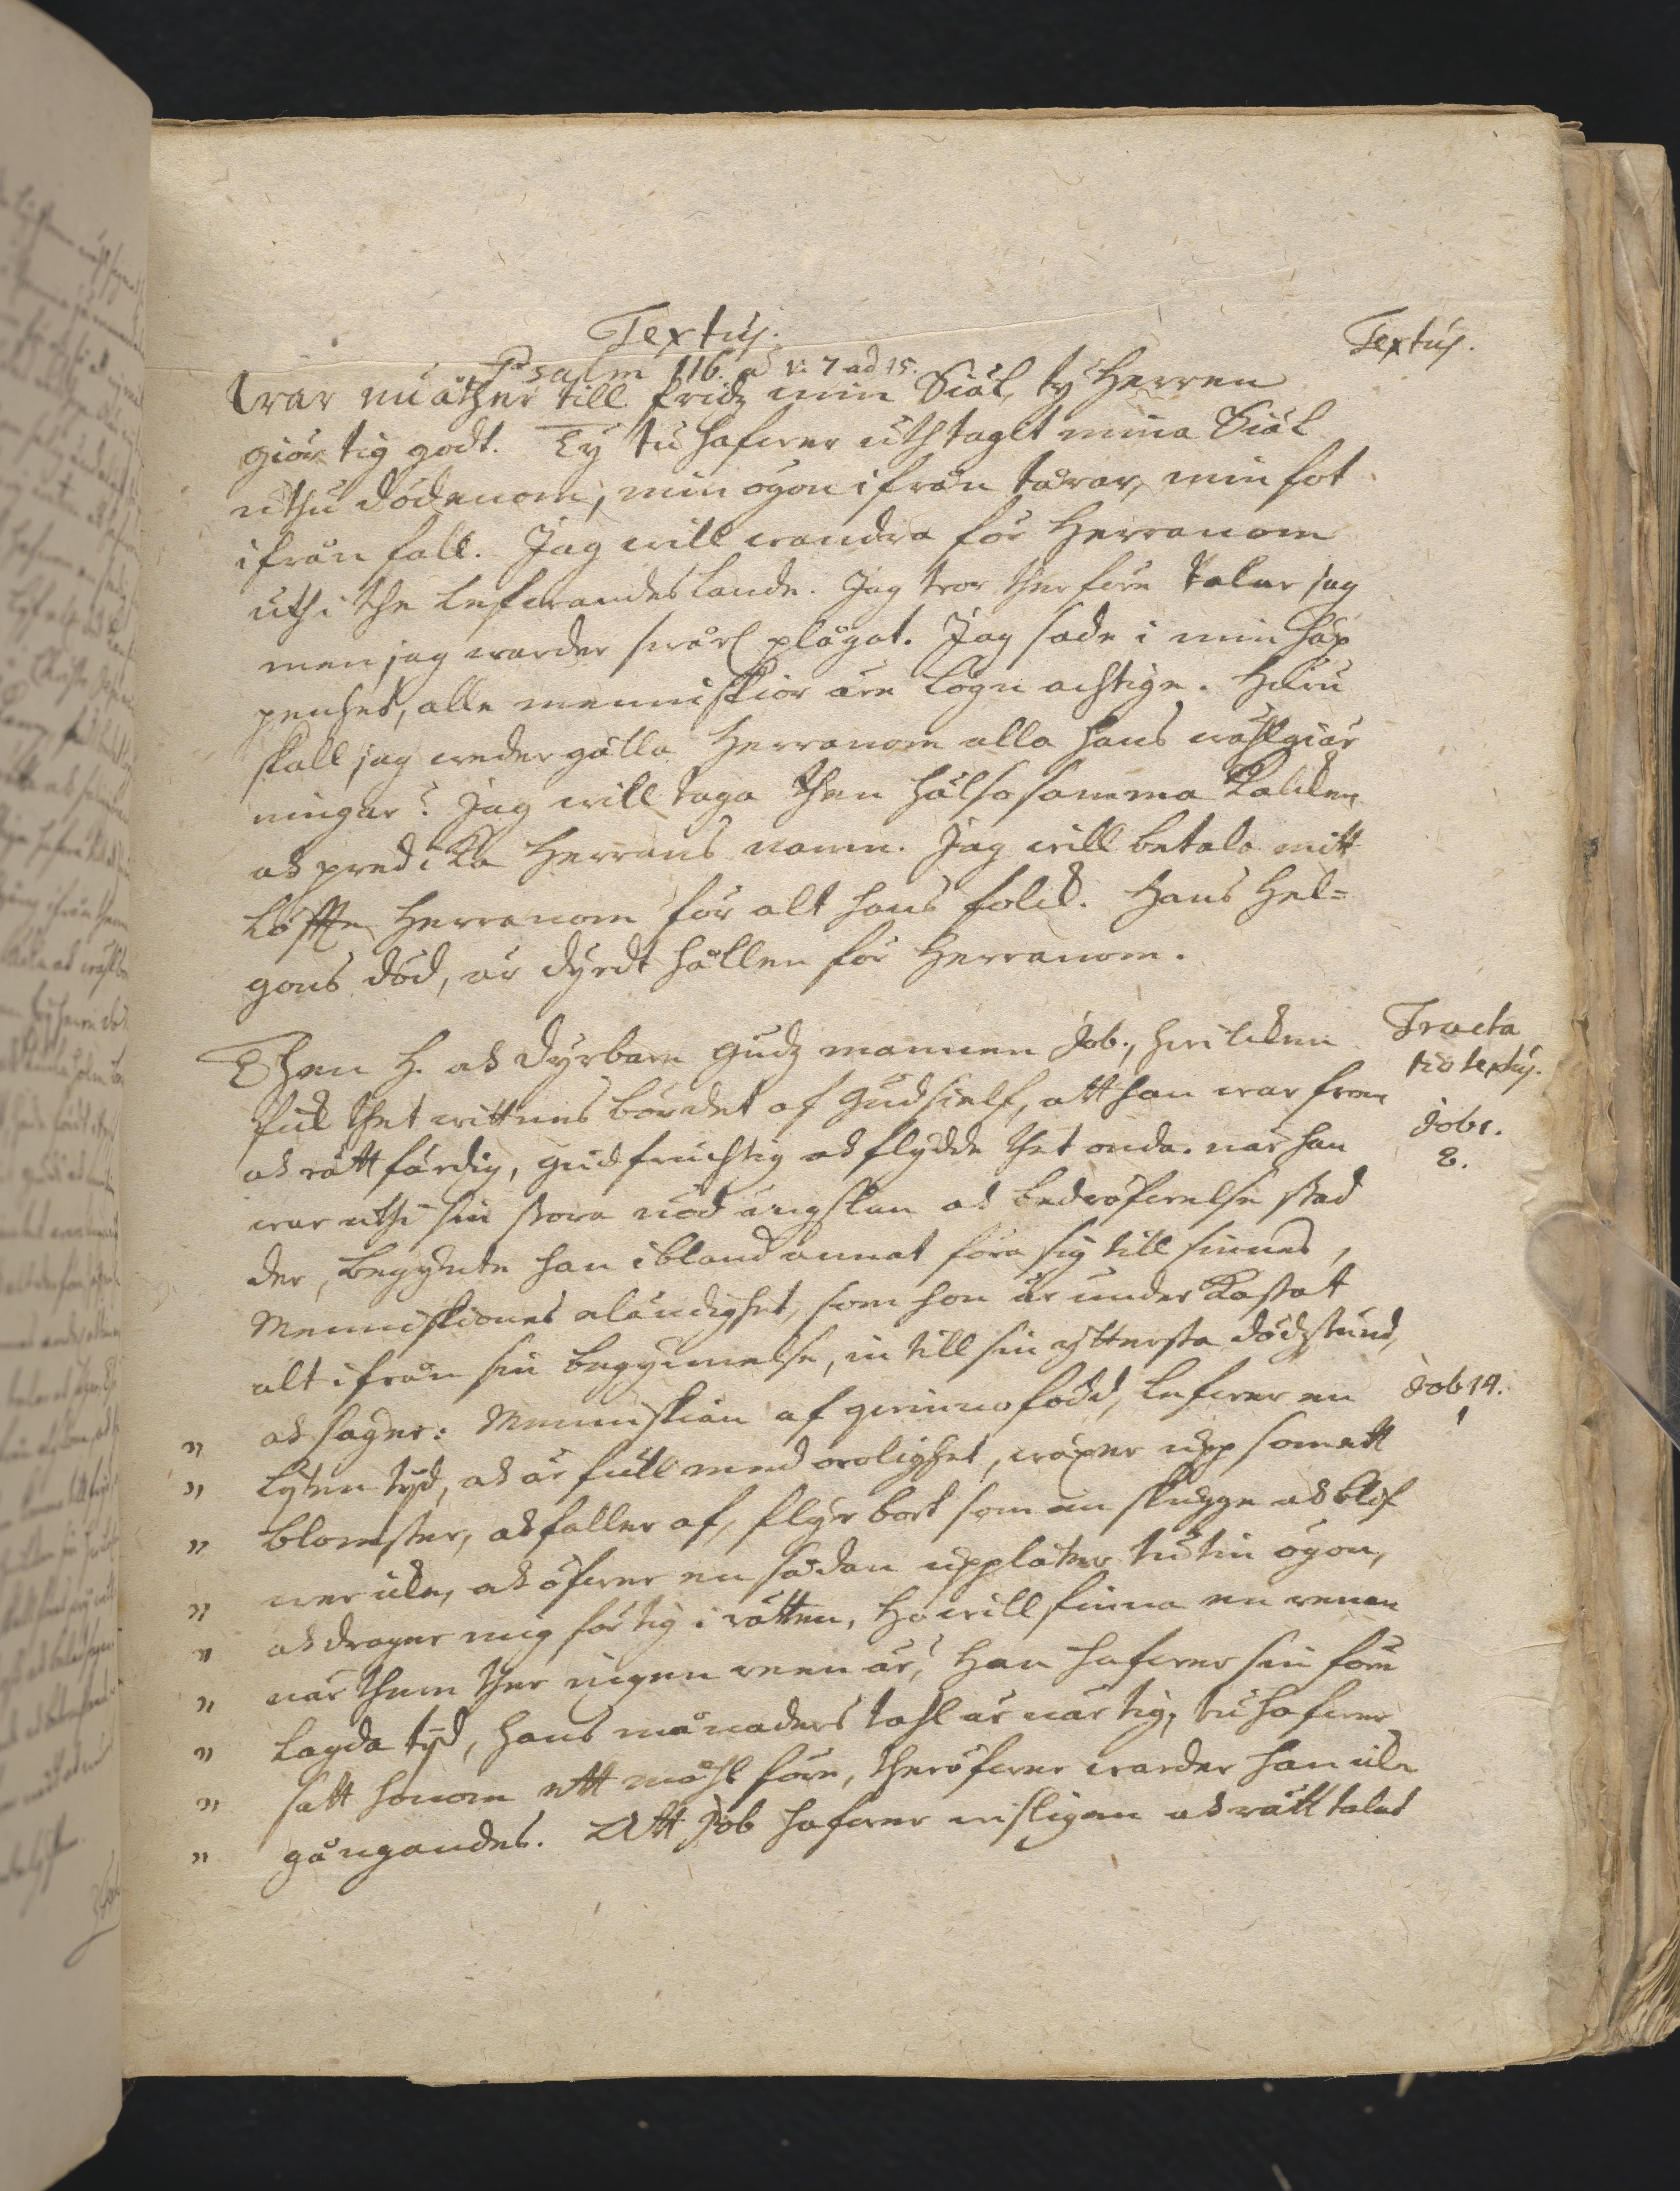 Textus.
Textus.
Psalm 116. a v: 7 ad 15.
War nu åther till fridz min Siäl, ty Herren
giör tig godt. Ty tu hafwer uthtagit mina Siäl
uthu dödenom, min ögon ifrån tårar, min fot
ifrån fall. Jag will wandra för Herranom
uthi the lefwandes lande. Jag tror therföre talar jag
men jag warder swårl plågat. Jag sade i min häp
penhet, alle menniskior äre lögnachtige. Huru
skall jag wedergälla Herranom alla hans wählgiär
ningar? Jag will taga then hälsosamma kalcken
och predika Herrans namn. Jag will betala mitt
löffte Herranom för alt hans folck. Hans Hel=
gons död, är dyrdt hållen för Herranom.
Then H. och dyrbare gudz mannen Job., hwilcken
Tracta
tio textus.
fick thet wittnesbördet af Gud sielf, att han war from
Job 1.
8.
och rättfärdig, gudfruchtig och flydde thet onda. när han
war uthi sin stora nöd ängslan och bedröfwelse stad
der, begynte han ibland annat föra sig till sinnes,
Menniskiones eländighet, som hon är underkastat
alt ifrån sin begynnelse, in till sin yttersta dödzstund,
och säger: Menniskian af qwinno född, lefwer en
Job 14.
1
" lijten tijd, och är full med orolighet, wäxer upp som ett
" blomster, och faller af, flyr bort som en skugge och blif
" wer icke, och öfwer en sådan upplåter tu tin ögon,
" och drager mig för tig i rätten, ho will finna en renan
" när them ther ingen reen är? Han hafwer sin före
" lagda tijd, hans månaders tahl är när tig, tu hafwer
" satt honom ett måhl före, theröfwer warder han icke
" gångandes. Att Job hafwer wisligen och rätt talat